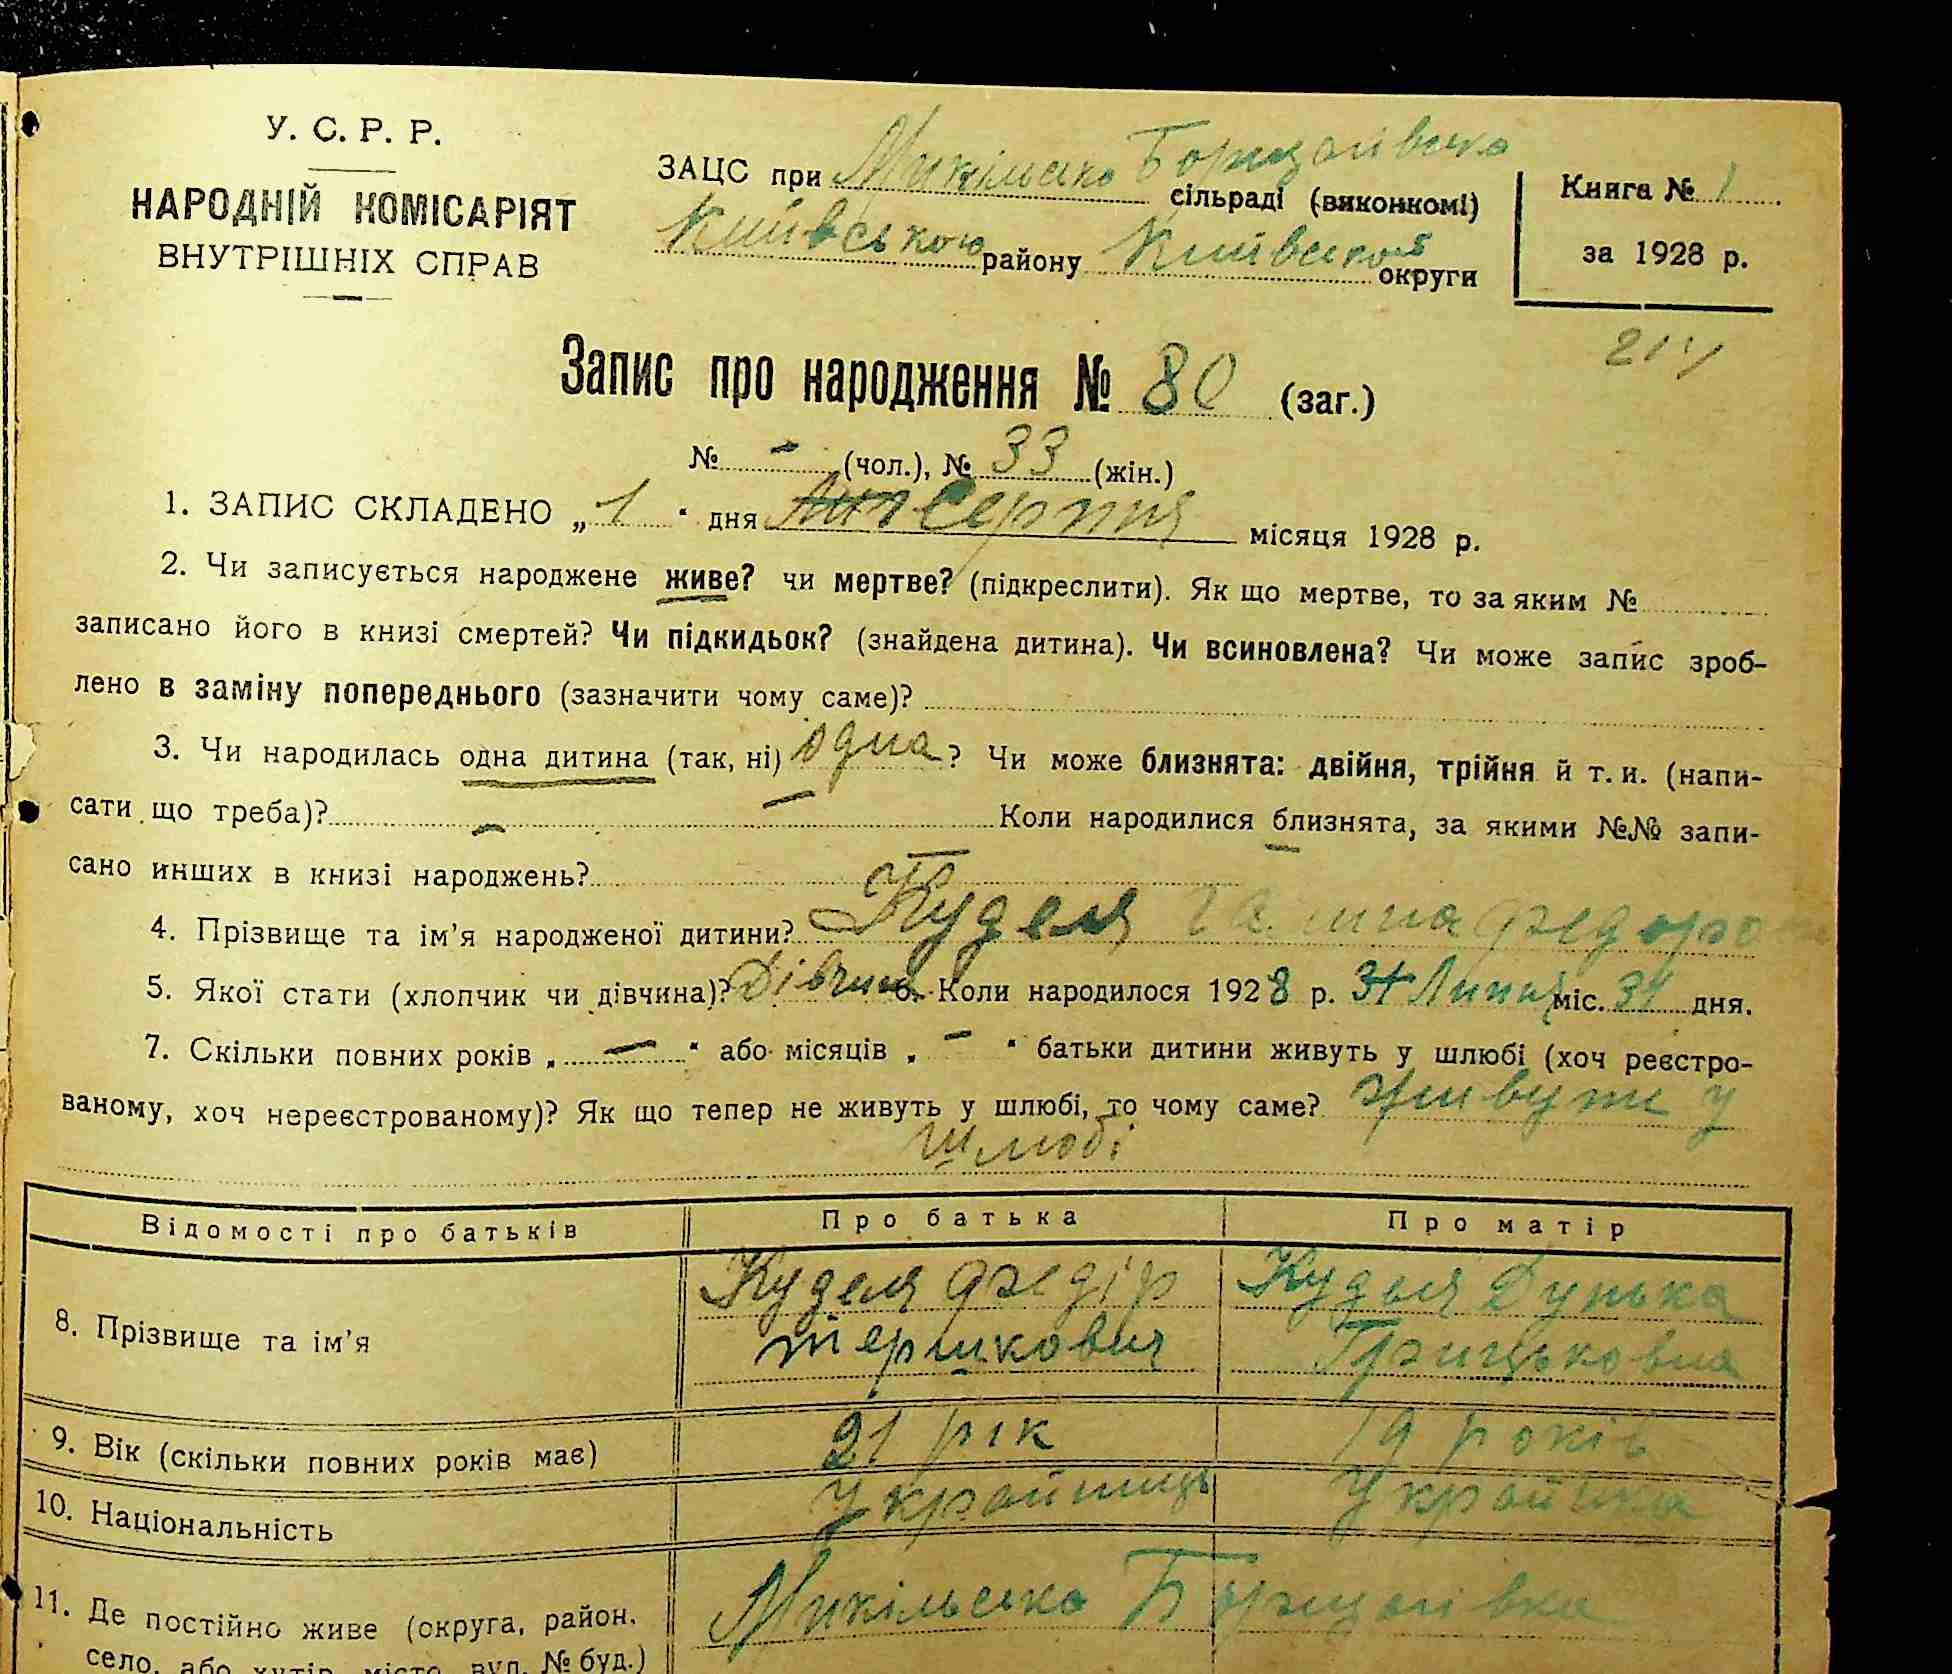 У. С. Р. Р.
НАРОДНІЙ КОМІСАРІЯТ
ВНУТРІШНІХ СПРАВ
ЗАЦС при Микільсько Борщагівська сільраді (виконкомі)
Київського району Київської округи
Книга № 1
за 1928 р.
Запис про народження № 80 (заг.)
№ - (чол.), № 33 (жін.)
1. ЗАПИС СКЛАДЕНО „ 1 “ дня Серпня місяця 1928 р.
2. Чи записується народжене живе? чи мертве? (підкреслити). Як що мертве, то за яким №
записано його в книзі смертей? Чи підкидьок? (знайдена дитина). Чи всиновлена? Чи може запис зроб-
лено в заміну попереднього (зазначити чому саме)?
3. Чи народилась одна дитина (так, ні) одна ? Чи може близнята: двійня, трійня й т. и. (напи-
сати що треба)? — Коли народилися близнята, за якими №№ запи-
сано инших в книзі народжень? —
4. Прізвище та ім'я народженої дитини? Куделя Галина
5. Якої стати (хлопчик чи дівчина)? Дівчина 6. Коли народилося 1928 р. 31 Липня міс. 31 дня.
7. Скільки повних років „ — “ або місяців „ — “ батьки дитини живуть у шлюбі (хоч реєстро-
ваному, хоч нереєстрованому)? Як що тепер не живуть у шлюбі, то чому саме? живуть у
шлюбі
Відомості про батьків Про батька Про матір
8. Прізвище та ім'я Куделя Федір Куделя Дунька
Грицьковна
9. Вік (скільки повних років має) 21 рік 19 років
10. Національність Українець Українка
11. Де постійно живе (округа, район, Микільсько Борщагівка
село, або хутір, місто, вул. № буд.)